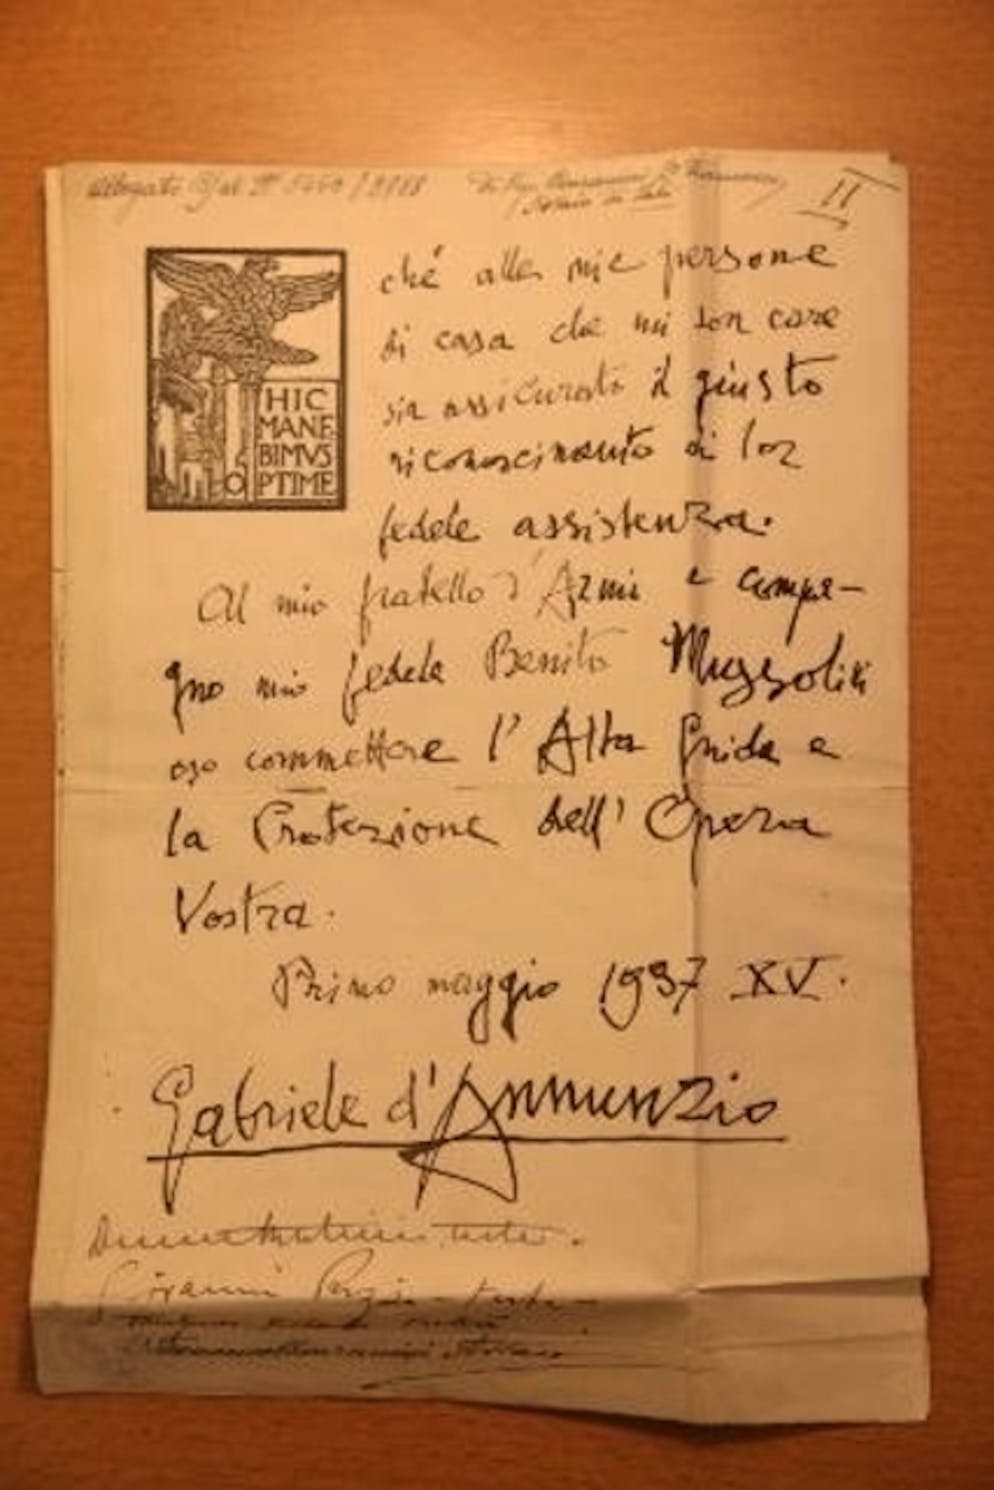 Allegato B) al N° 5260/2888
11
HIC
MANE
BIMVS
OPTIME
ché alle mie persone
di casa che mi son care
sia assicurato il giusto
riconoscimento di lor
fedele assistenza.
Al mio fratello d'Armi e compa-
gno mio fedele Benito Mussolini
oso commettere l'Alta Guida e
la Protezione dell'Opera
Vostra.
Primo maggio 1937 XV.
Gabriele d'Annunzio
teste.
Giovanni teste
notaio